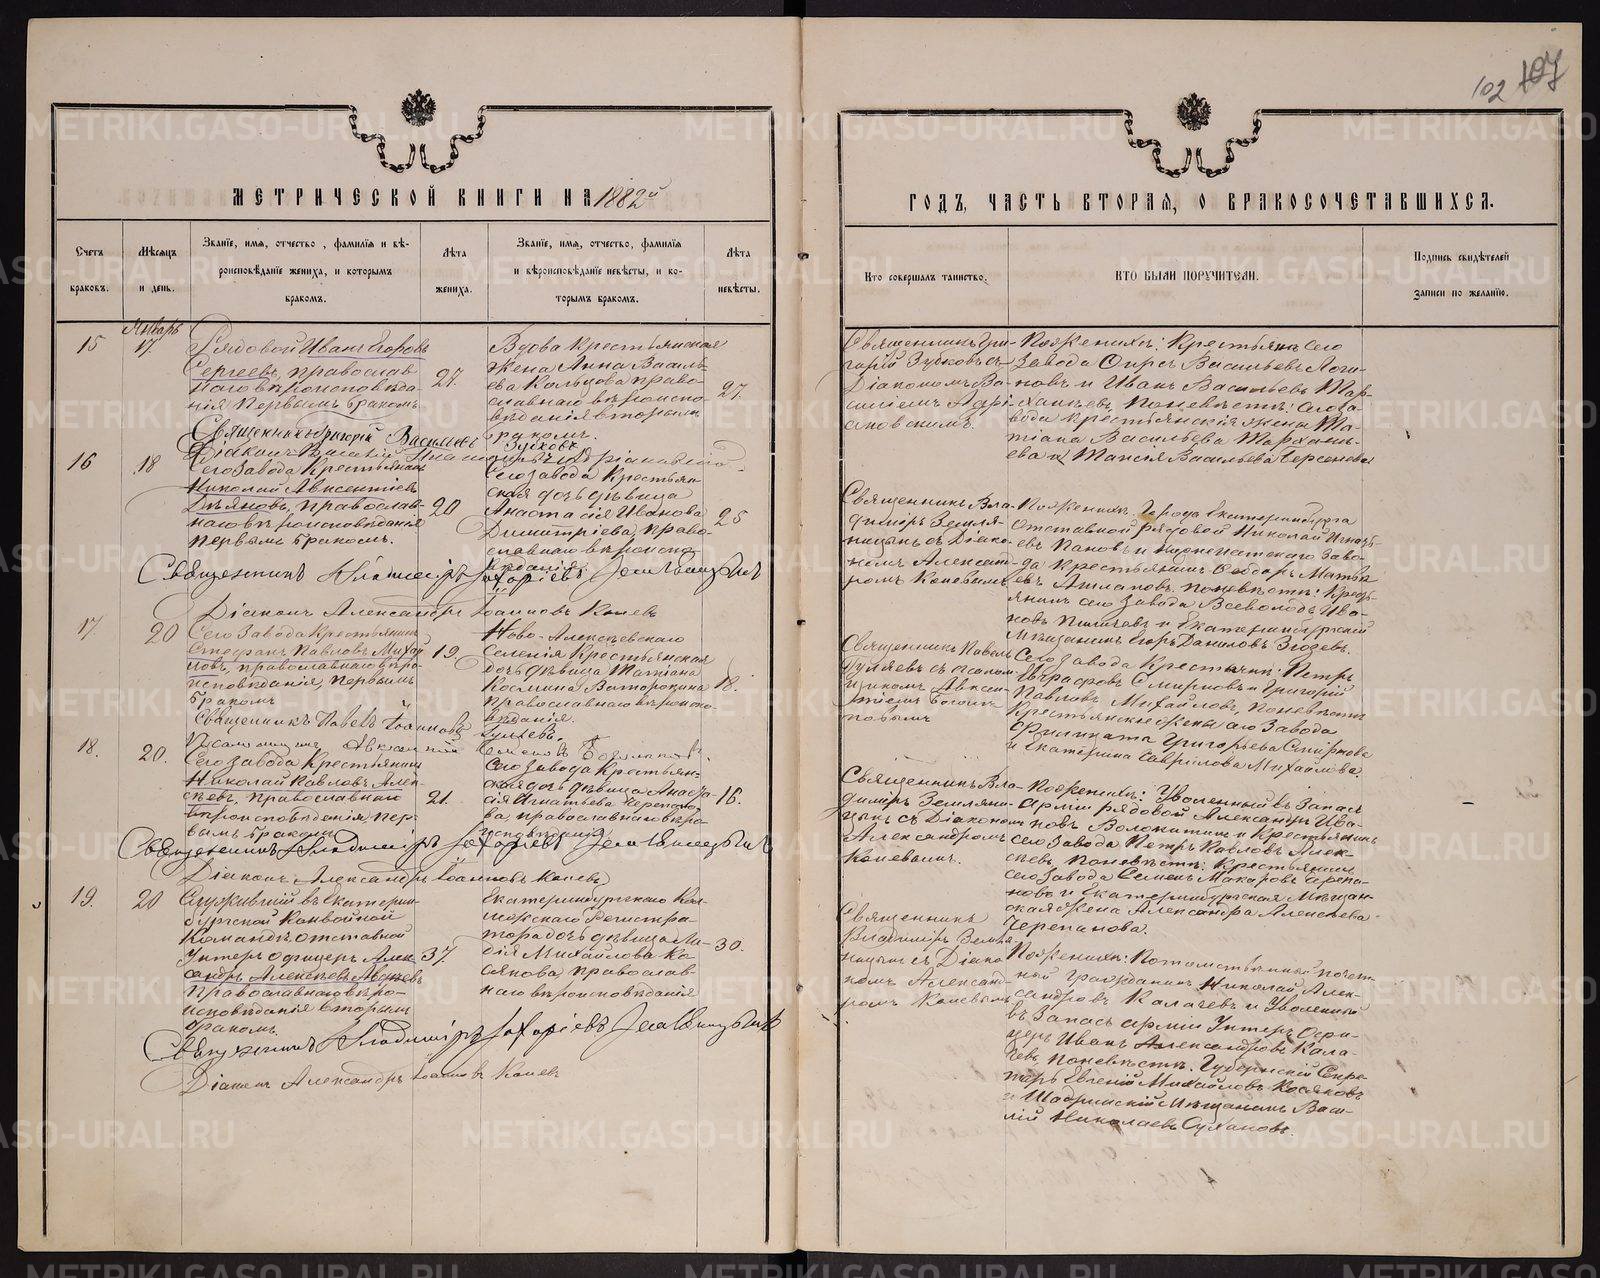 102 107
МЕТРИЧЕСКОЙ КНИГИ НА 1882й
ГОДЪ, ЧАСТЬ ВТОРАЯ, О БРАКОСОЧЕТАВШИХСЯ.
Счетъ
браковъ.
Мѣсяцъ
и день.
Званіе, имя, отчество, фамилія и вѣ-
роисповѣданіе жениха, и которымъ
бракомъ.
Лѣта
жениха.
Званіе, имя, отчество, фамилія
и вѣроисповѣданіе невѣсты, и ко-
торымъ бракомъ.
Лѣта
невѣсты.
Кто совершалъ таинство.
КТО БЫЛИ ПОРУЧИТЕЛИ.
Подпись свидѣтелей
записи по желанію.
Январь
15
17.
Рядовой Иванъ Егоровъ
Сергеевъ, православ-
наго вѣроисповѣда-
нія первымъ бракомъ
27.
Вдова Крестьянская
жена Анна Василь-
ева Кольцова право-
славнаго вѣроиспо-
вѣданія вторымъ
бракомъ.
27.
Священникъ Гри-
горій Зубковъ съ
Діакономъ Ва-
силіемъ Адрі-
ановскимъ.
По женихѣ: Крестьяне сего
завода
и Иванъ Васильевъ Тар-
ханѣевъ, по невѣстѣ: сего за-
вода крестьянскія жены Та-
тіана Васильева Тархань-
ева и Таисія Васильева
Священникъ Григорій Васильевъ Зубковъ
Діаконъ Василій
16
18
Сего завода Крестьянинъ
Николай Авксентіевъ
православ-
наго вѣроисповѣданія
первымъ бракомъ.
20
Сего завода Крестьян-
ская дочь дѣвица
Анастасія Иванова
Димитріева, право-
славнаго вѣроиспо-
вѣданія
25
Священникъ Вла-
диміръ Земля-
ницынъ съ Діако-
номъ Александ-
ромъ Коневымъ
По женихѣ: Города Екатеринбурга
отставной рядовой Николай Игнатъ-
евъ Пановъ и Нижнеисетскаго заво-
да крестьянинъ Ѳеодоръ Матвѣ-
евъ по невѣстѣ: Кресть-
янинъ сего завода Всеволодъ Ива-
новъ и Екатеринбургскій
Мѣщанинъ Егоръ Даниловъ
Священникъ Владиміръ Захаріевъ Земляницынъ
Діаконъ Александръ Іоанновъ Коневъ
17.
20
Сего завода Крестьянинъ
Стефанъ Павловъ Михай-
ловъ, православнаго вѣро-
исповѣданія, первымъ
бракомъ
19.
Ново-Алексѣевскаго
Селенія Крестьянская
дочь дѣвица Татіана
Космина Ваторопина
православнаго вѣроиспо-
вѣданія.
18.
Священникъ Павелъ
Гуляевъ съ псалом-
щикомъ Авксен-
тіемъ
Сего завода Крестьяне: Петръ
Смирновъ и Григорій
Павловъ Михайловъ, по невѣстѣ
Крестьянскія жены сего завода
Филицата Григорьева Смирнова
и Екатерина Гаврилова Михайлова
Священникъ Павелъ Іоанновъ Гуляевъ.
Псаломщикъ Авксентій
18.
20.
Сего завода Крестьянинъ
Николай Павловъ Алек-
сѣевъ, православнаго
вѣроисповѣданія, пер-
вымъ бракомъ
21.
Сего завода Крестьян-
ская дочь дѣвица Анаста-
сія Игнатьева Черепано-
ва, православнаго вѣро-
исповѣданія,
16.
Священникъ Вла-
диміръ Земляни-
цынъ съ Діакономъ
Александромъ
Коневымъ.
По женихѣ: Уволенный въ запасъ
арміи рядовой Александръ Ива-
новъ Волокитинъ и Крестьянинъ
сего завода Петръ Павловъ Алек-
сѣевъ, по невѣстѣ: Крестьянинъ
сего завода Семенъ Макаровъ Черепа-
новъ и Екатеринбургская Мѣщан-
ская жена Александра Алексѣева
Черепанова.
Священникъ Владиміръ Захаріевъ Земляницынъ
Діаконъ Александръ Іоанновъ Коневъ
19.
20
Служившій въ Екатерин-
бургской Конвойной
Командѣ отставной
Унтеръ офицеръ Алек-
сандръ Алексѣевъ
православнаго вѣро-
исповѣданія вторымъ
бракомъ.
37.
Екатеринбургскаго Кол-
лежскаго Регистра-
тора дочь дѣвица Ли-
дія Михайлова Ко-
сякова, православ-
наго вѣроисповѣданія
30.
Священникъ
Владиміръ Земля-
ницынъ съ Діако-
номъ Александ-
ромъ Коневымъ
По женихѣ: Потомственный почет-
ный гражданинъ Николай Алек-
сандровъ Калачевъ и Уволенный
въ запасъ арміи Унтеръ Офи-
церъ Иванъ Александровъ Кала-
чевъ, по невѣстѣ: Губернскій Секре-
тарь Евгеній Михайловъ Косяковъ
и Шадринскій Мѣщанинъ Васи-
лій Николаевъ Сухановъ.
Священникъ Владиміръ Захаріевъ Земляницынъ
Діаконъ Александръ Іоанновъ Коневъ
METRIKI.GASO-URAL.RU